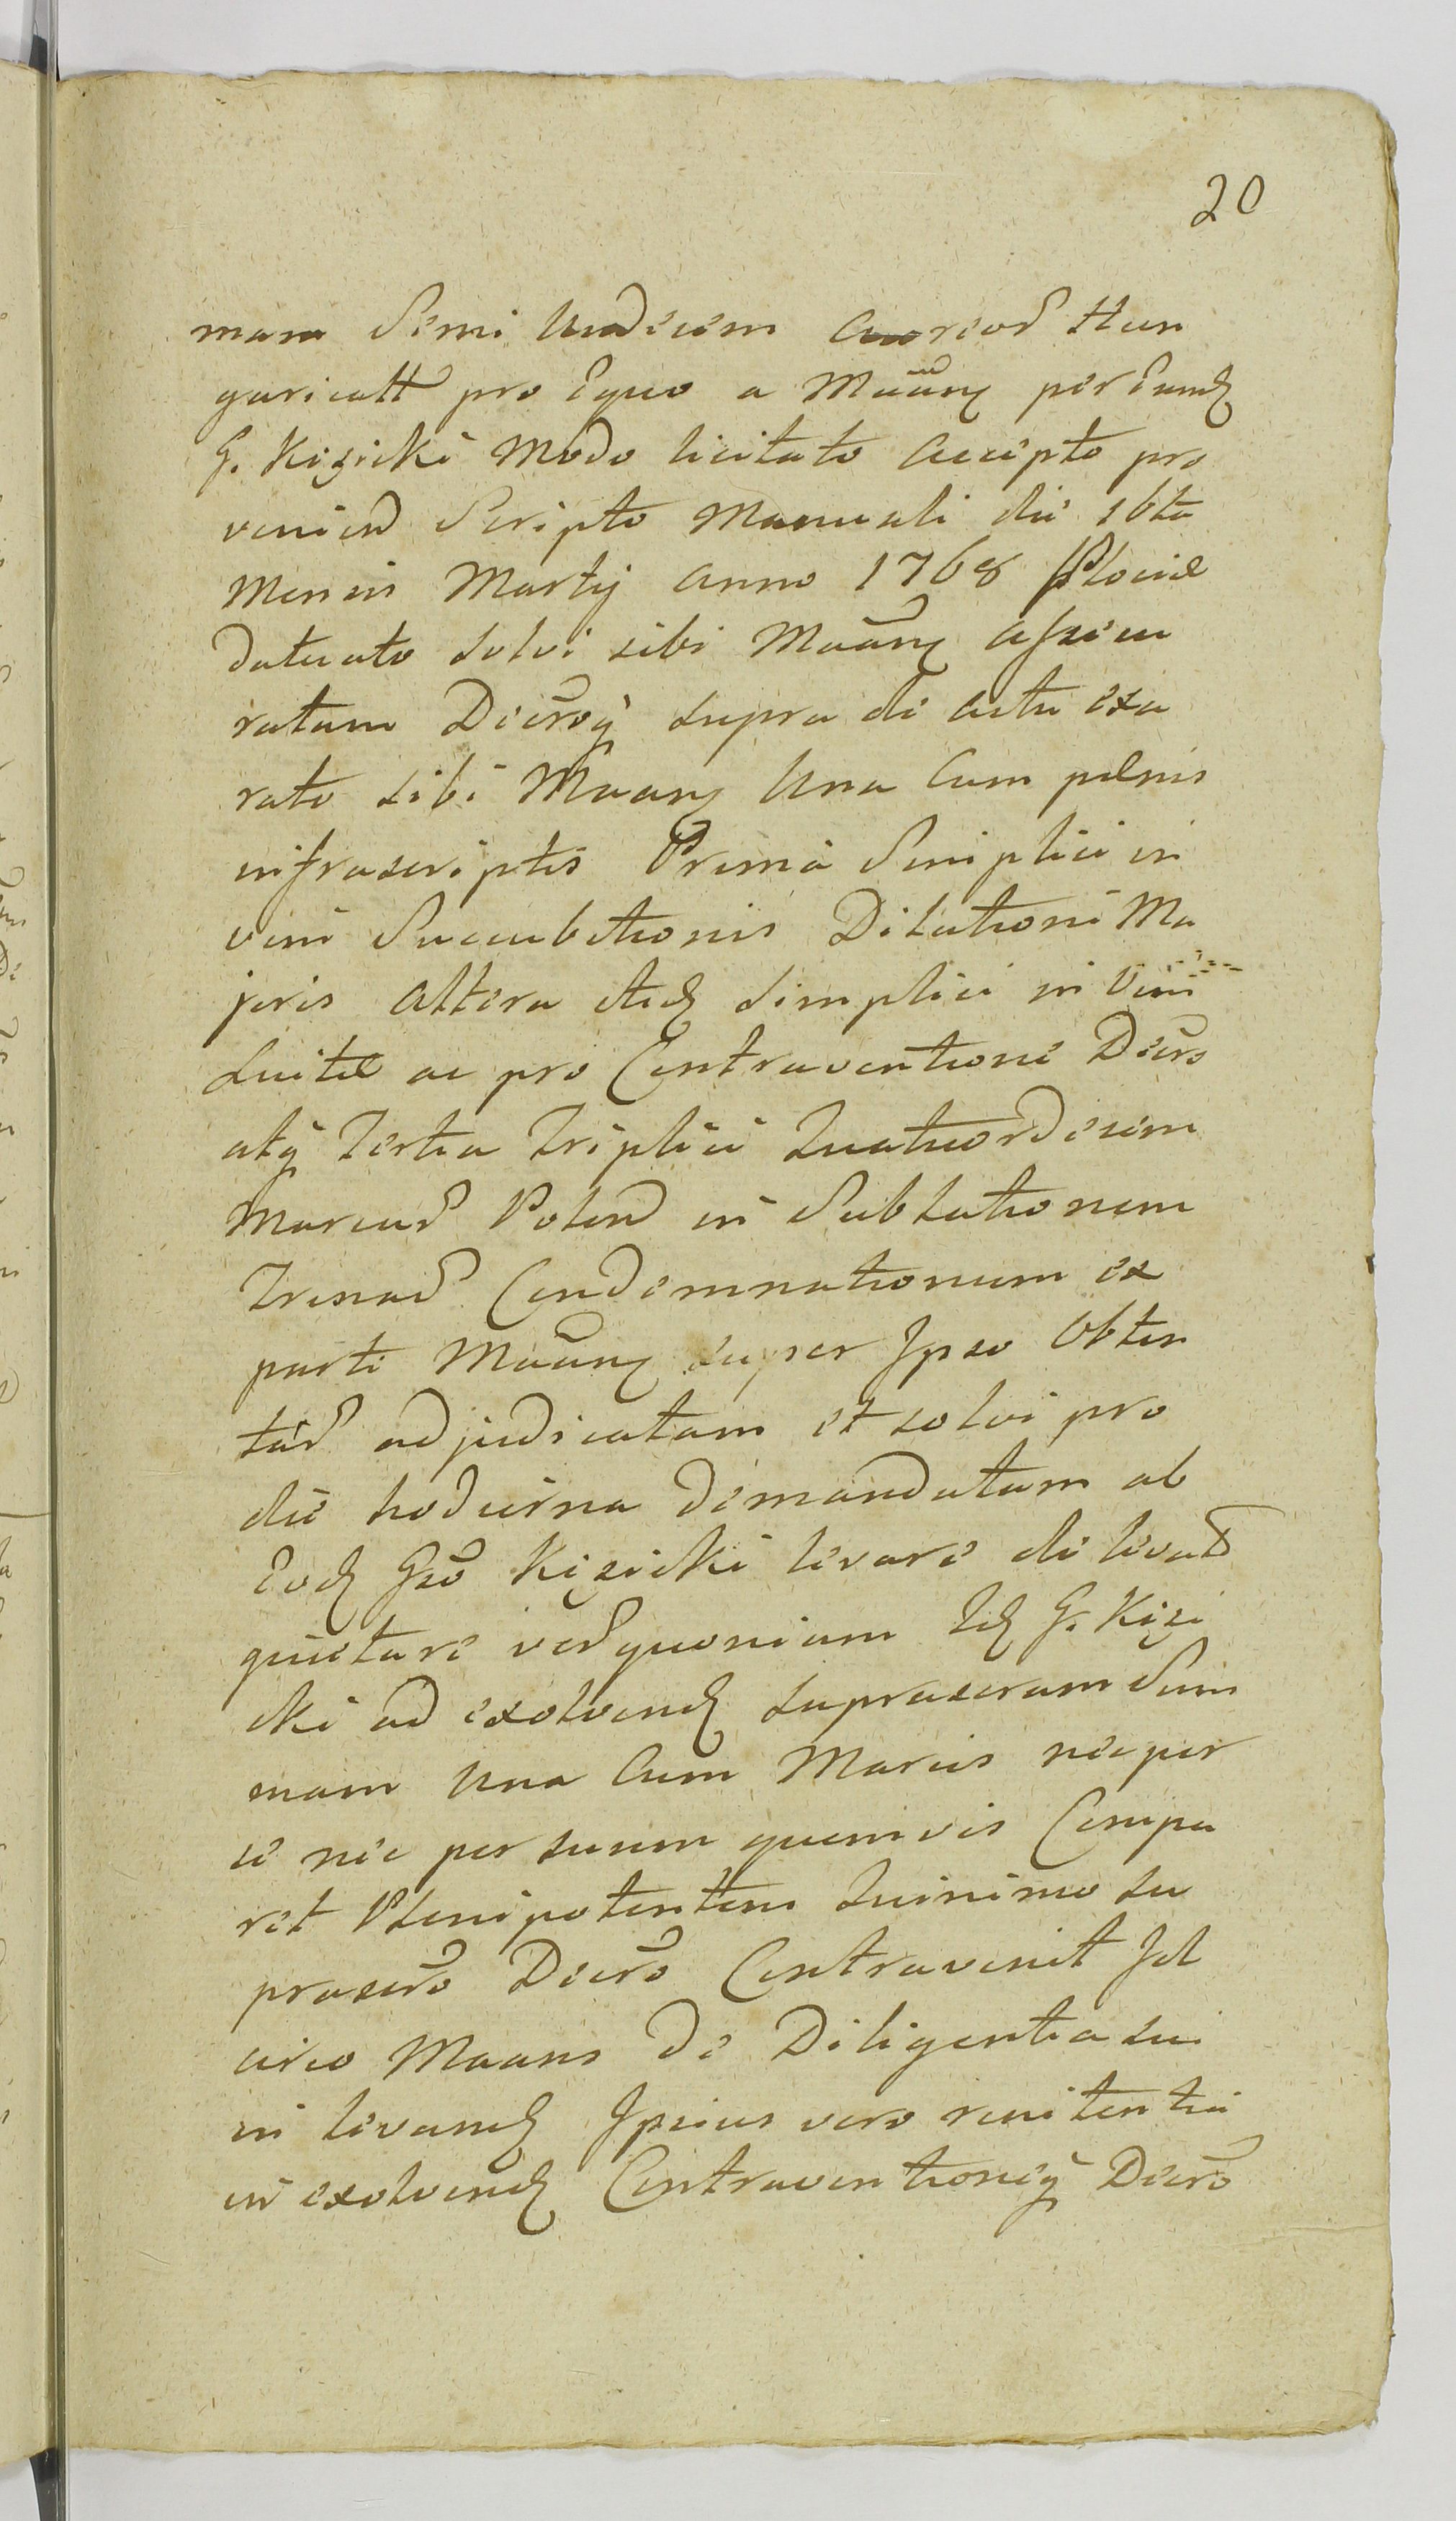 20
mam Semi Undecem Aureor Hun
garicall pro Equo a Maãng per Eund
G. Kizicki Modo licitato Accepto pro
venien Scripto Manuali die 16ta
Mensis Martij Anno 1768 Plociæ
datuato solvi sibi Maãng Assecu
ratam Decrog supra de actu exa
rato sibi Maang Una Cum pœnis
infrascriptis Prima Simplici in
vim Succubitionis Dilationi Ma
joris Altera itid simplici in Vim
Luitæ ac pro Contraventione Decro
atq Tertia Triplici Quatuordecem
Marcar Polon in Sublationem
Trinar Condemnationum ex
parte Maãng super Ipso Obten
tar adjudicatam et solvi pro
die hodierna demandatam ab
Eod Gso Kizicki levare de levat
quietare ver quoniam Id G. Kizi
cki ad exolvend suprascram Sum
mam Una Cum Marcis nec per
se nec per suum quemvis Compa
ret Plenipotentem Quinimo su
prascro Decro Contravenit Id
circo Maans de Diligentia sui
in levand Ipsius vero renitentia
in exolvend Contraventioneq Decro